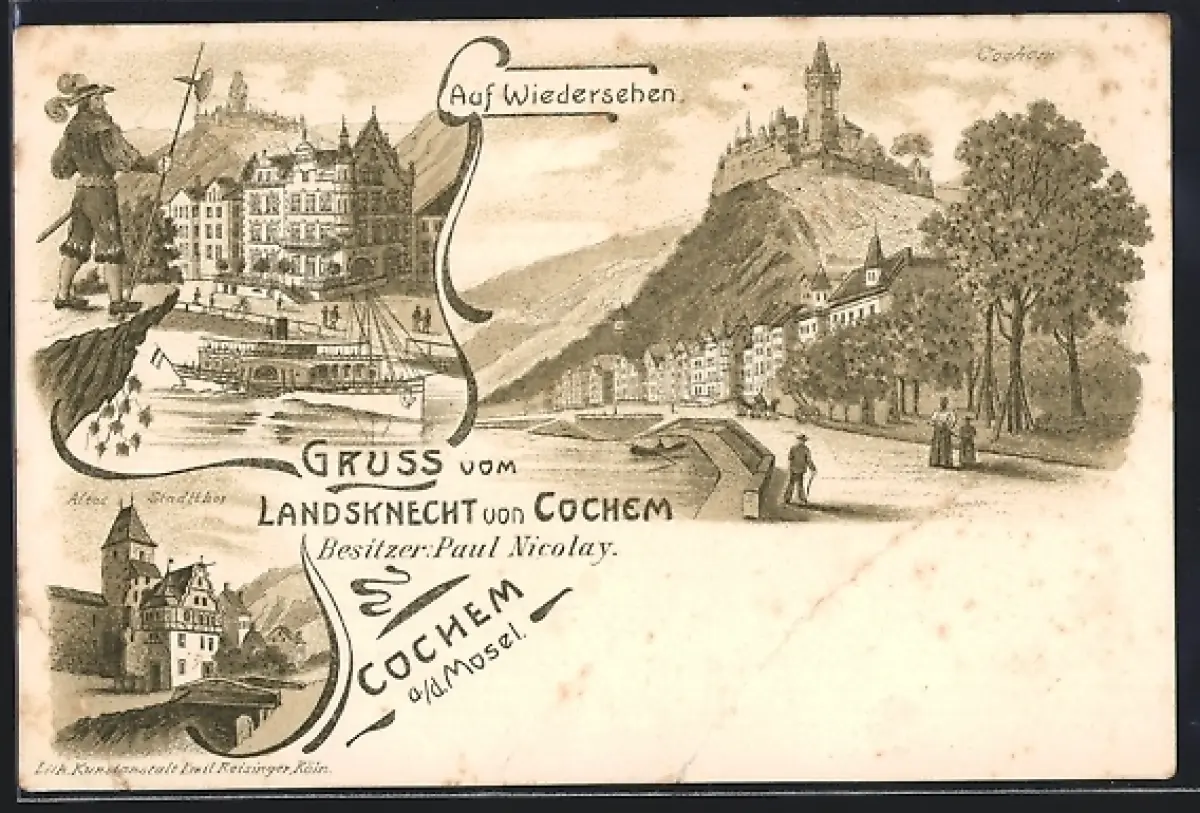 Auf Wiedersehen.
Cochem
GRUSS vom
LANDSKNECHT von COCHEM
Besitzer: Paul Nicolay.
COCHEM
a/d. Mosel.
Altes Stadtthor
Lith. Kunstanstalt Emil Reisinger, Köln.